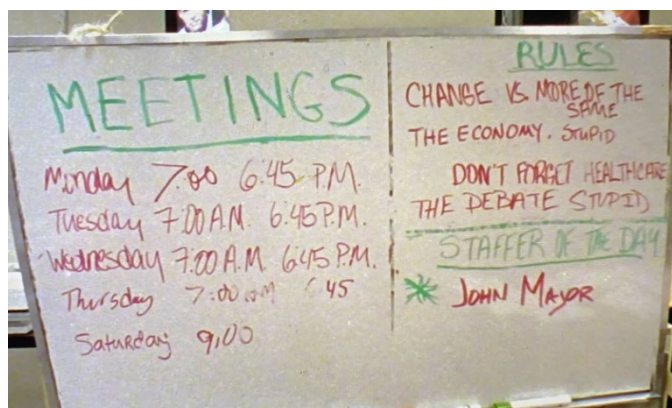 MEETINGS
Monday 7:00 6:45 P.M.
Tuesday 7:00 A.M. 6:45 P.M.
Wednesday 7:00 A.M. 6:45 P.M.
Thursday 7:00 AM 6 45
Saturday 9,00
RULES
CHANGE VS. MORE OF THE
SAME
THE ECONOMY. STUPID
DON'T FORGET HEALTHCARE
THE DEBATE STUPID
STAFFER OF THE DAY
JOHN MAYOR